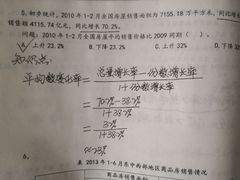 5、初步统计，2010 年 1-2 月全国房屋销售面积为 7155.18 万平方米，同比增长
销售额 4115.74 亿元，同比增长 70.2%。
问题：2010 年 1-2 月全国房屋平均销售价格比 2009 同期（ ）。
A. 上升 23.2% B. 下降 23.2% C. 上升 32% D. 下
知识点：
平均数变化率 = 总量增长率 - 份数增长率
1+份数增长率
= 70.2% - 38.2%
1+38.2%
= 32%
1+38.2%
≈23%
6、
表 2013 年 1-6 月东中西部地区商品房销售情况
商品房销售面积